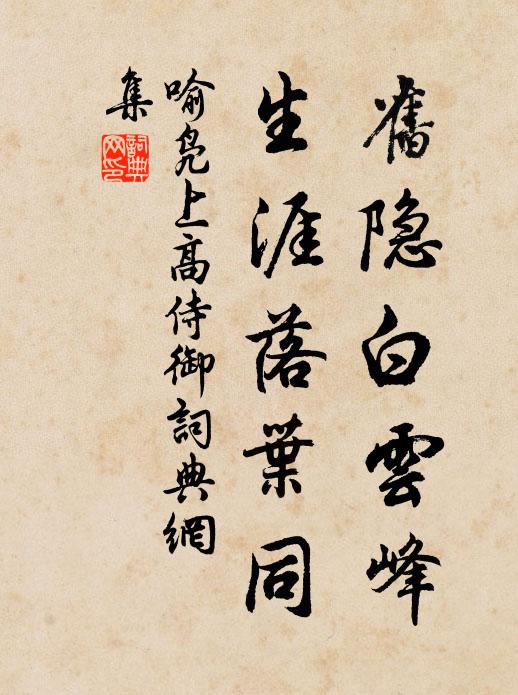 舊隐白雲峰
生涯落葉同
喻凫上高侍御詞典網
集
詞典
网印